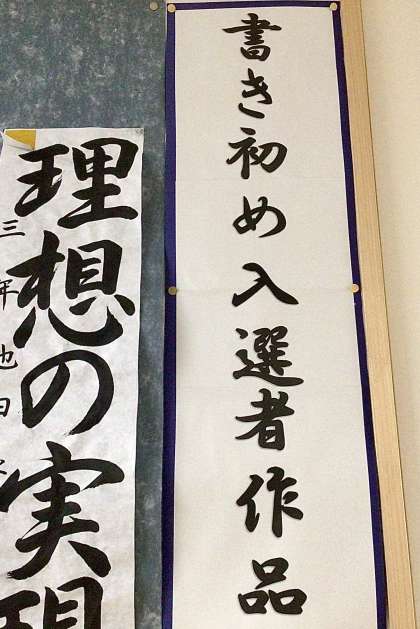 書き初め入選者作品
理想の実現
三年池田